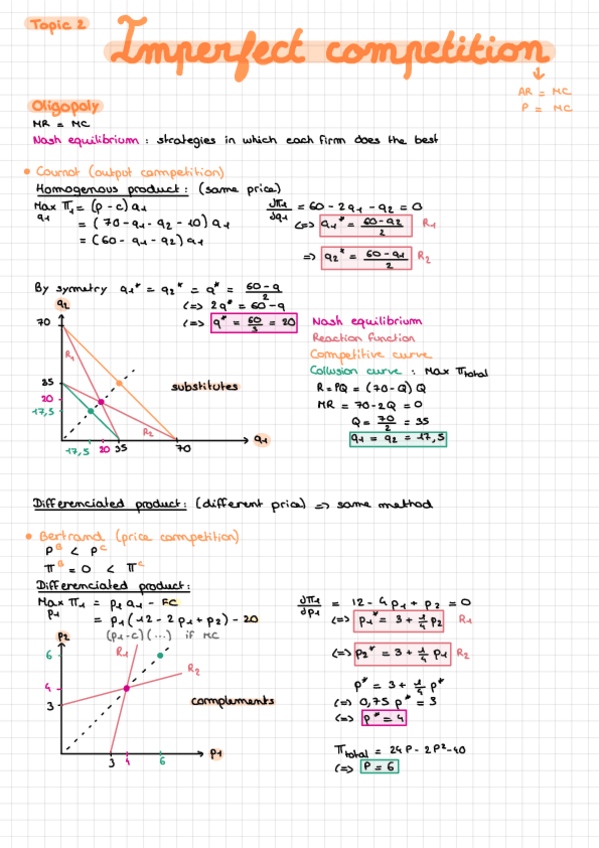 Topic 2
Imperfect competition
↓
AR = MC
P = MC
Oligopoly
MR = MC
Nash equilibrium : strategies in which each firm does the best
• Cournot (output competition)
Homogenous product : (same price)
Max π1 = (p - c) q1
q1
= (70 - q1 - q2 - 10) q1
= (60 - q1 - q2) q1
∂π1/∂q1 = 60 - 2q1 - q2 = 0
(=) q1* = (60 - q2)/2 R1
=> q2* = (60 - q1)/2 R2
By symetry q1* = q2* = q* = (60 - q)/2
(=) 2q* = 60 - q
(=) q* = 60/3 = 20
q2
70
35
20
17,5
R1
R2
17,5 20 35 70
q1
substitutes
Nash equilibrium
Reaction function
Competitive curve
Collusion curve : Max πtotal
R = PQ = (70 - Q) Q
MR = 70 - 2Q = 0
Q = 70/2 = 35
q1 = q2 = 17,5
Differenciated product : (different price) => same method
• Bertrand (price competition)
P^B < P^C
π^B = 0 < π^C
Differenciated product :
Max π1 = p1 q1 - FC
p1
= p1 (12 - 2p1 + p2) - 20
(p1 - c) (...) if MC
∂π1/∂p1 = 12 - 4p1 + p2 = 0
(=) p1* = 3 + 1/4 p2 R1
(=) p2* = 3 + 1/4 p1 R2
p* = 3 + 1/4 p*
(=) 0,75 p* = 3
(=) p* = 4
πtotal = 24P - 2P² - 40
(=) P = 6
p2
6
4
3
R1
R2
3 4 6
p1
complements